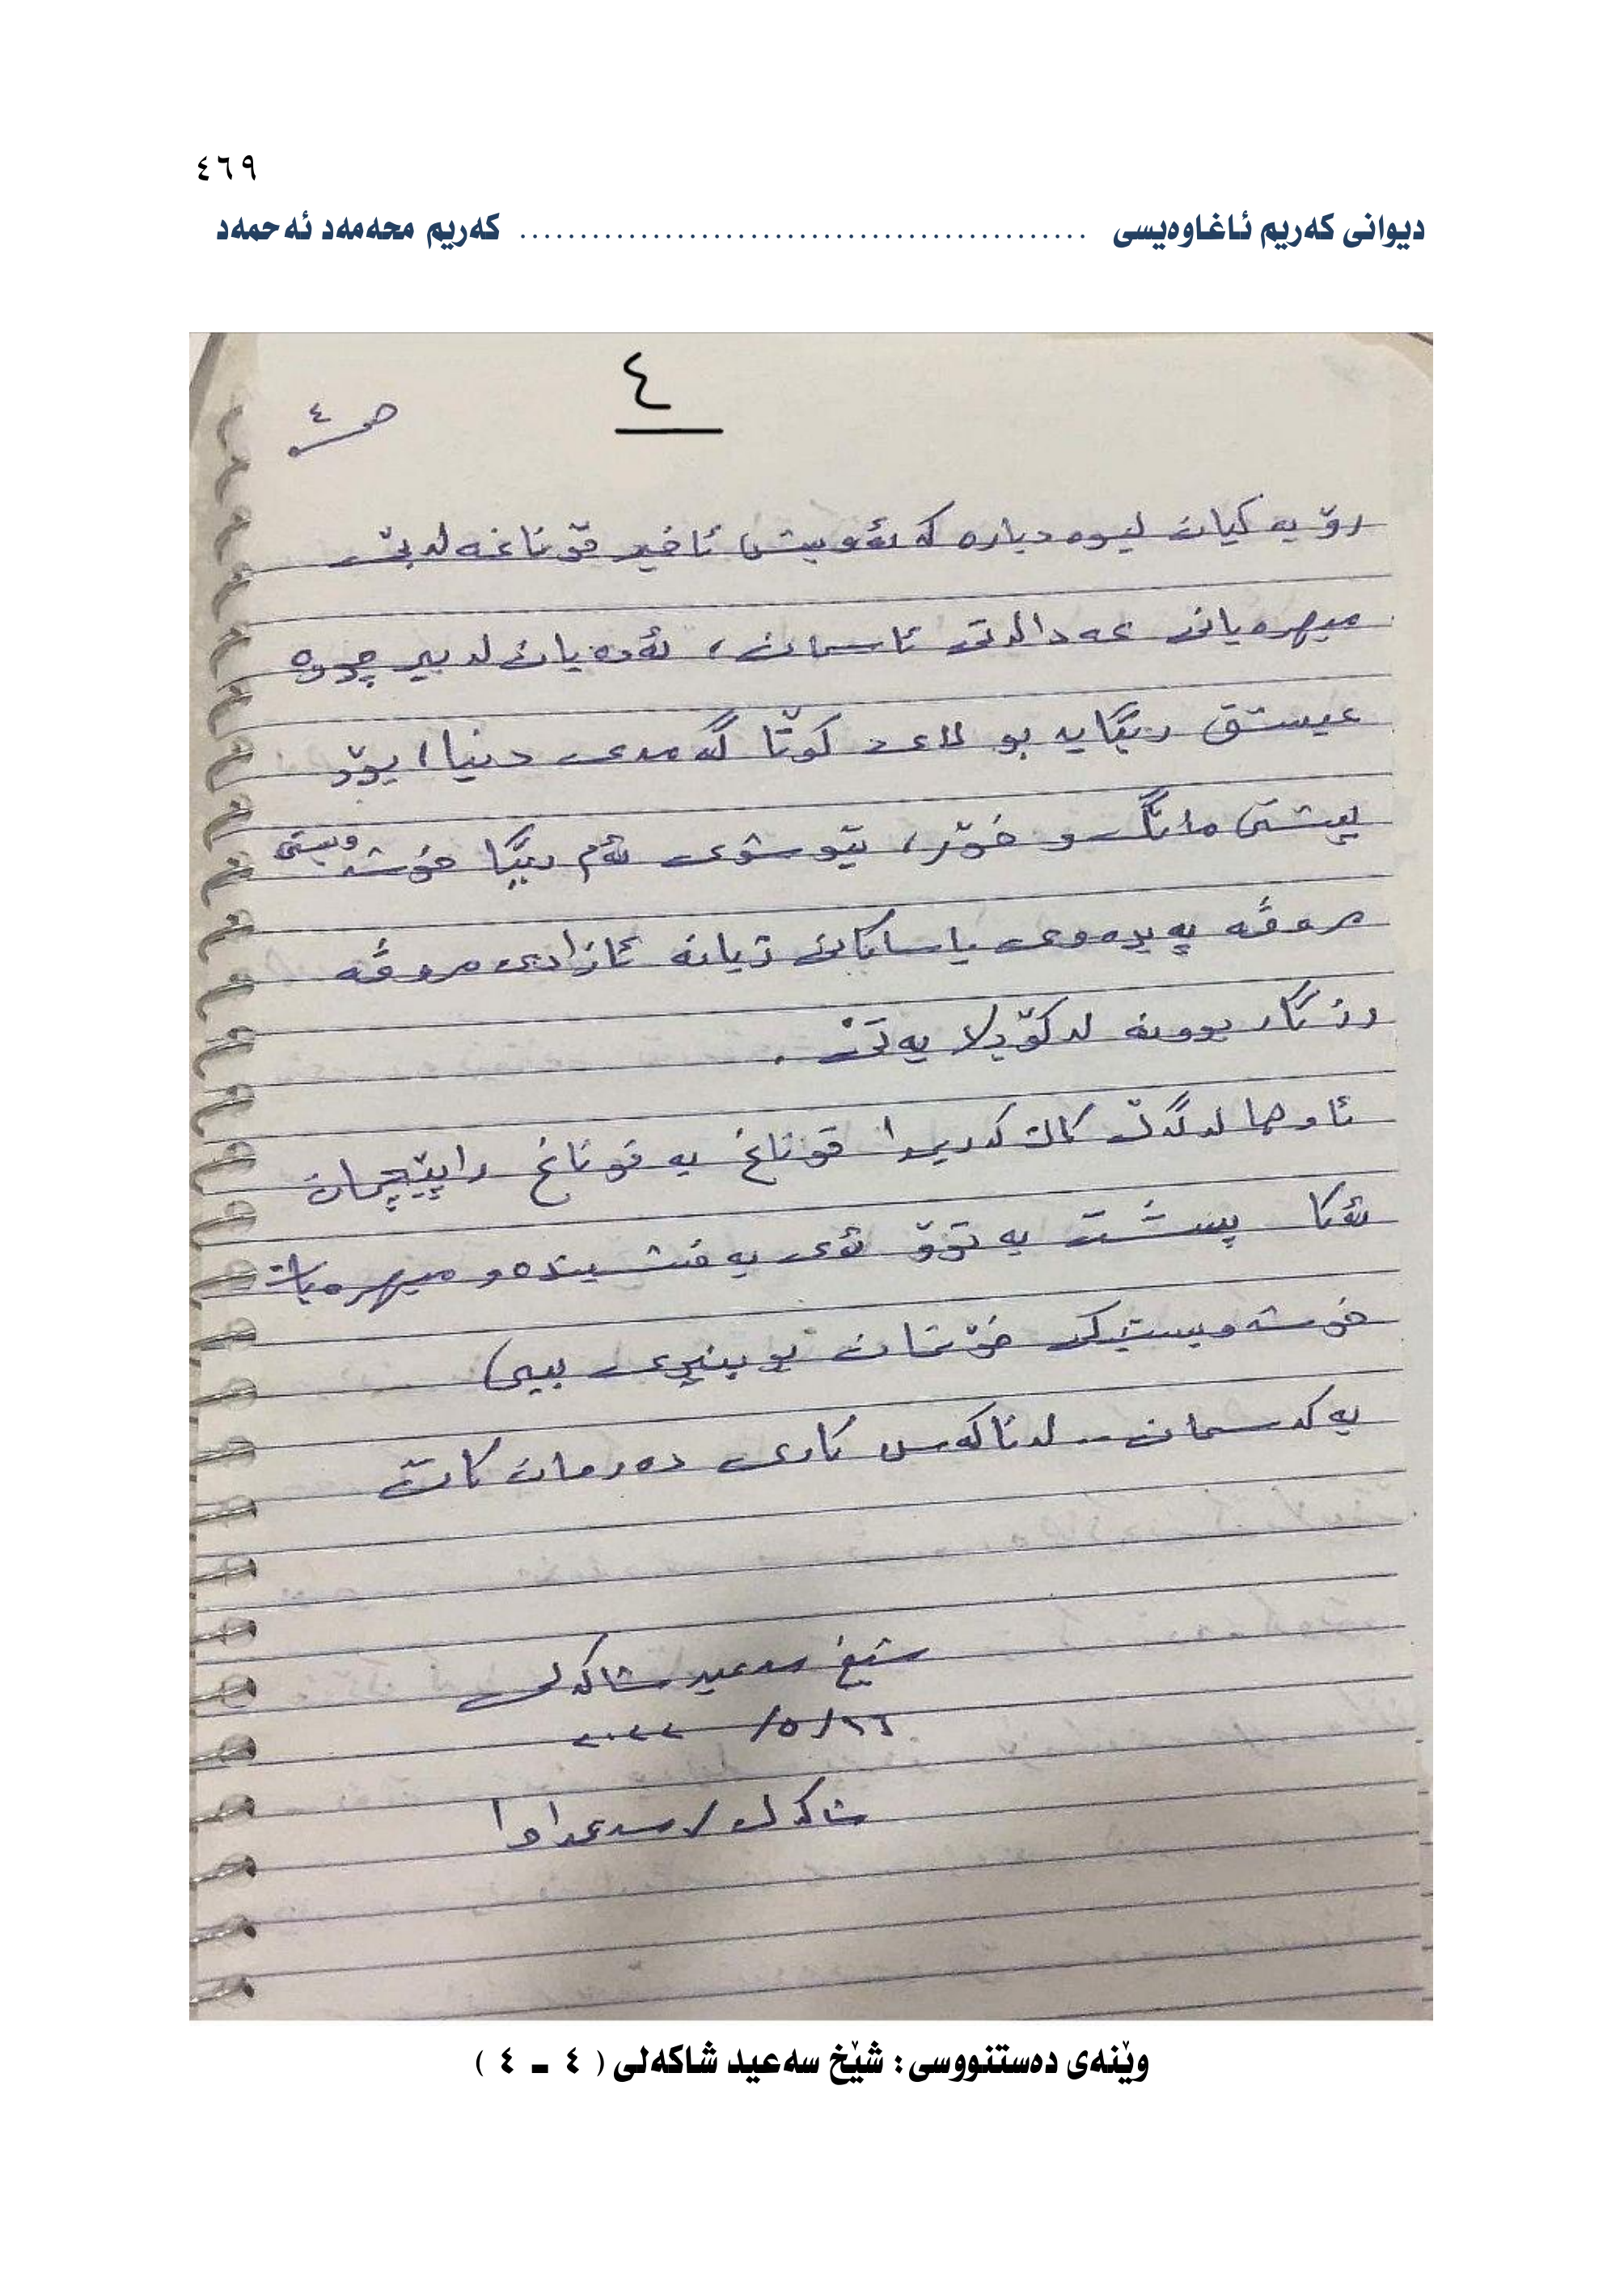 ٤٦٩
دیوانی کەریم ئاغاوەیسی ............................................... کەریم محەمەد ئەحمەد
٤
ص ٤
رۆیەکیان لیوە دیارە کە ئەویش ئاخیر قۆناغە لەبێ
میهرەبانی عەدالەتی ئاسمان، ئەوەیان لەبیر چووە
عیشق رێگایە بۆ لای کۆتا گەمەی دنیا، بۆ
پیشتی مانگ و خۆر، تێوشوی ئەم رێگا خۆشەویستی
مرۆڤە پەیڕەوی یاساکانی ژیانە ئازادی مرۆڤە
رزگار بوونە لە کۆیلایەتی .
ئاوها لەگەڵ کاک کەریمدا قۆناغ بە قۆناغ راپێچمان
ئەکا پشت بە تۆ ئەی بەخشیندە و میهرەبان
خۆشەویستیکی خۆتمان بۆ بنێری بیی
بەکەسمان .. لەناکەس کاری دەرمان کات
شێخ سەعید شاکەلی
٢٦/٥/ ٢٠٢٢
شاکەل / سەعداوا
وێنەی دەستنووسی: شێخ سەعید شاکەلی ( ٤ ـ ٤ )